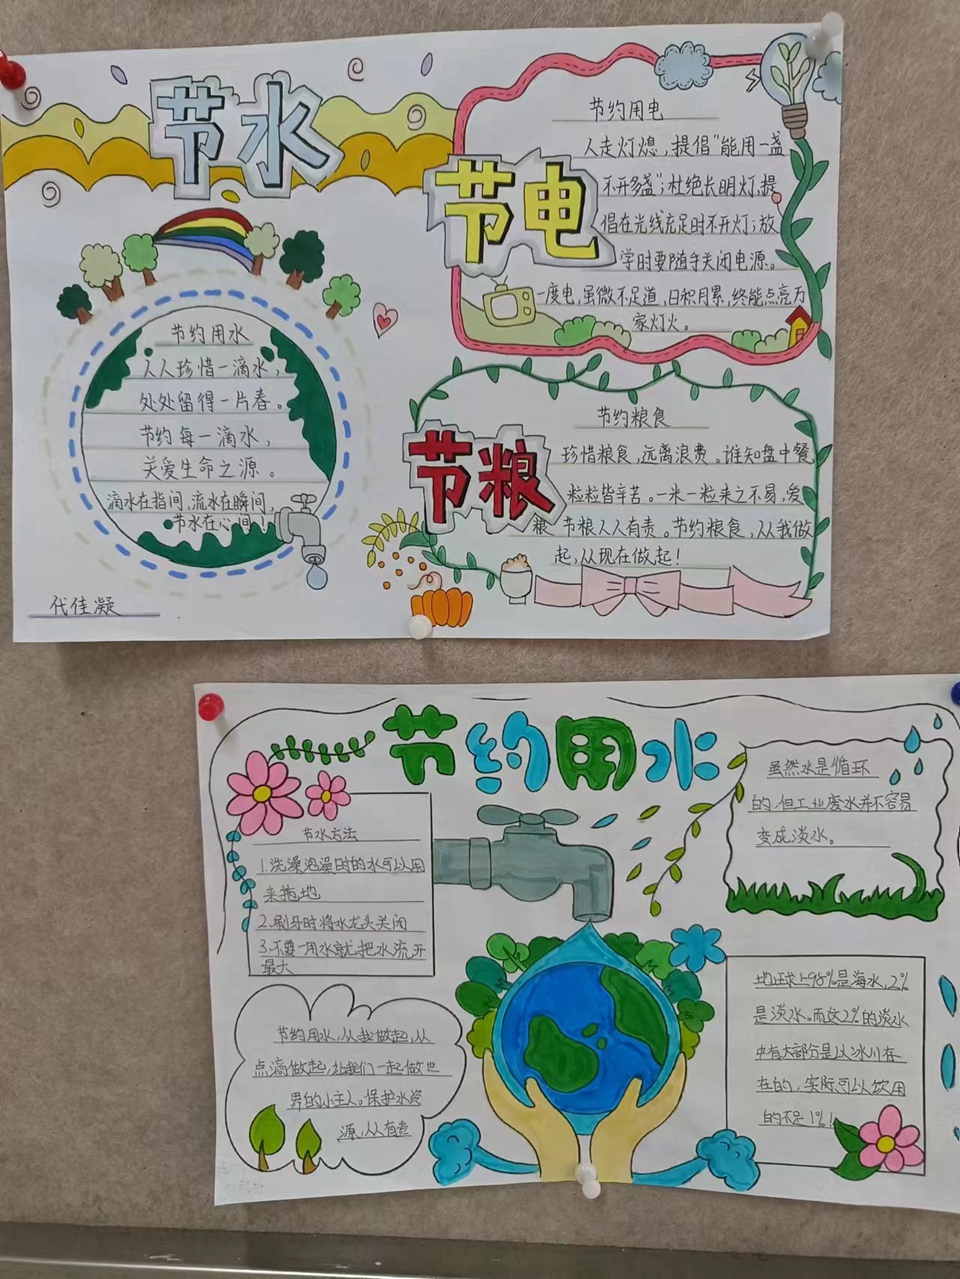 节水
节约用水
人人珍惜一滴水，
处处留得一片春。
节约每一滴水，
关爱生命之源。
滴水在指间，流水在瞬间，
节水在心间！
代佳凝
节电
节约用电
人走灯熄，提倡"能用一盏
不开多盏"；杜绝长明灯，提
倡在光线充足时不开灯；放
学时要随手关闭电源。
一度电，虽微不足道，日积月累，终能点亮万
家灯火。
节粮
节约粮食
珍惜粮食，远离浪费。谁知盘中餐，
粒粒皆辛苦。一米一粒来之不易，爱
粮 节粮人人有责。节约粮食，从我做
起，从现在做起！
节约用水
节水方法
1.洗澡泡澡时的水可以用
来拖地
2.刷牙时将水龙头关闭
3.不要一用水就把水流开
最大
节约用水，从我做起，从
点滴做起，让我们一起做世
界的小主人。保护水资
源，从有责
虽然水是循环
的，但工业废水并不容易
变成淡水。
地球上98%是海水，2%
是淡水。而这2%的淡水
中有大部分是以冰川存
在的，实际可以饮用
的不足1%！